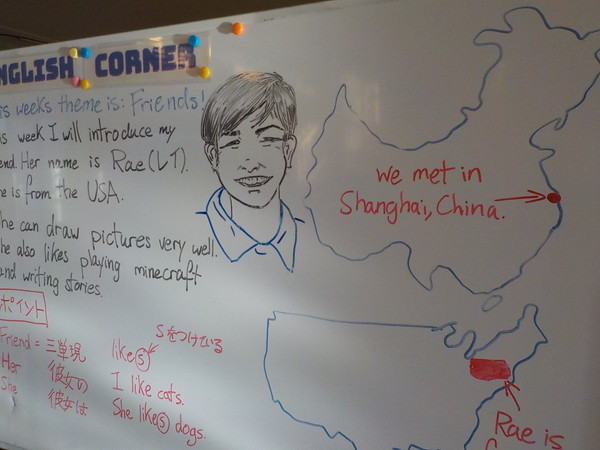 NGLISH CORNER
is weeks theme is: Friends!
is week I will introduce my
end. Her name is Rae(レイ).
he is from the USA.
he can draw pictures very well.
he also likes playing minecraft
and writing stories.
ポイント
Friend = 三単現
Her 彼女の
She 彼女は
sをつけている
likeⓢ
I like cats.
She likeⓢ dogs.
we met in
Shanghai, China.
Rae is